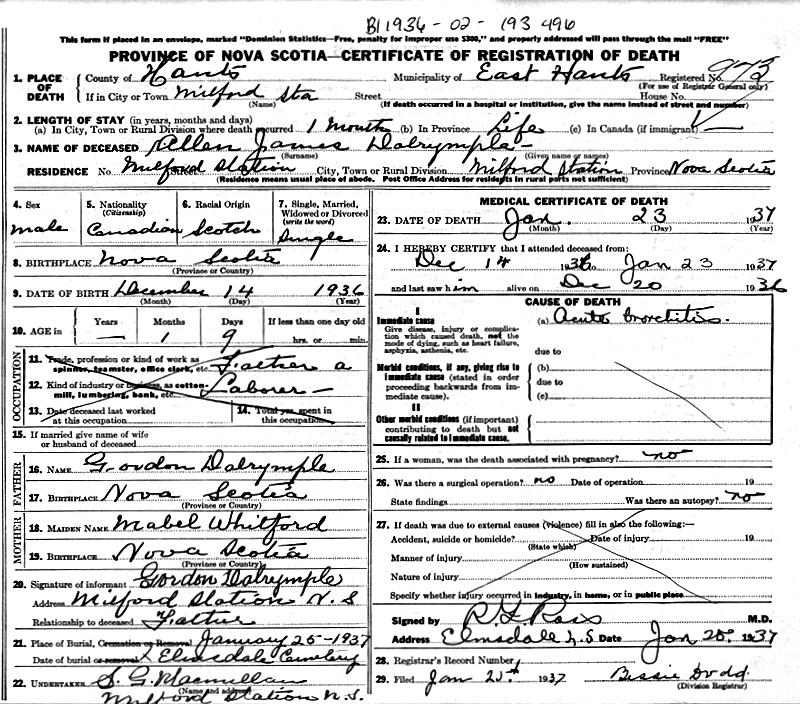 B1936-02-193496
This form if placed in an envelope, marked "Dominion Statistics—Free, penalty for improper use $300," and properly addressed will pass through the mail "FREE"
PROVINCE OF NOVA SCOTIA—CERTIFICATE OF REGISTRATION OF DEATH
1. PLACE OF DEATH County of Hants Municipality of East Hants Registered No. 973
(For use of Registrar General only)
If in City or Town Milford Sta Street House No.
(Name) (If death occurred in a hospital or institution, give the name instead of street and number)
2. LENGTH OF STAY (in years, months and days)
(a) In City, Town or Rural Division where death occurred 1 Month (b) In Province Life (c) In Canada (if immigrant) —
3. NAME OF DECEASED Allen James Dalrymple —
(Surname) (Given name or names)
RESIDENCE No. Milford Station Street City, Town or Rural Division Milford Station Province Nova Scotia
(Residence means usual place of abode. Post Office Address for residents in rural parts not sufficient)
4. Sex
male
5. Nationality
(Citizenship)
Canadian
6. Racial Origin
Scotch
7. Single, Married, Widowed or Divorced
(write the word)
Single
8. BIRTHPLACE Nova Scotia
(Province or Country)
9. DATE OF BIRTH December 14 1936
(Month) (Day) (Year)
10. AGE in Years Months Days If less than one day old
— 1 9 hrs. or min.
OCCUPATION
11. Trade, profession or kind of work as spinner, teamster, office clerk, etc. Father a
12. Kind of industry or business, as cotton-mill, lumbering, bank, etc. Laborer —
13. Date deceased last worked at this occupation
14. Total yrs. spent in this occupation
15. If married give name of wife or husband of deceased
FATHER
16. NAME Gordon Dalrymple
17. BIRTHPLACE Nova Scotia
(Province or Country)
MOTHER
18. MAIDEN NAME Mabel Whitford
19. BIRTHPLACE Nova Scotia
(Province or Country)
20. Signature of informant Gordon Dalrymple
Address Milford Station N.S
Relationship to deceased Father
21. Place of Burial, Cremation or Removal January 25-1937
Date of burial or removal Elmsdale Cemetery
22. UNDERTAKER S. G. Macmillan
(Name and address)
Milford Station N.S.
MEDICAL CERTIFICATE OF DEATH
23. DATE OF DEATH Jan. 23 1937
(Month) (Day) (Year)
24. I HEREBY CERTIFY that I attended deceased from:
Dec 14 1936 to Jan 23 1937
and last saw him alive on Dec 20 1936
CAUSE OF DEATH
I
Immediate cause (a) Acute bronchitis.
Give disease, injury or complication which caused death, not the mode of dying, such as heart failure, asphyxia, asthenia, etc.
due to
Morbid conditions, if any, giving rise to immediate cause (stated in order proceeding backwards from immediate cause).
(b)
due to
(c)
II
Other morbid conditions (if important) contributing to death but not causally related to immediate cause.
25. If a woman, was the death associated with pregnancy? no
26. Was there a surgical operation? no Date of operation 19
State findings Was there an autopsy? no
27. If death was due to external causes (violence) fill in also the following:—
Accident, suicide or homicide? Date of injury 19
(State which)
Manner of injury
(How sustained)
Nature of injury
Specify whether injury occurred in industry, in home, or in public place
Signed by M.D.
Address Elmsdale N.S Date Jan 25 1937
28. Registrar's Record Number
29. Filed Jan 25 1937 Bessie Dodd
(Division Registrar)